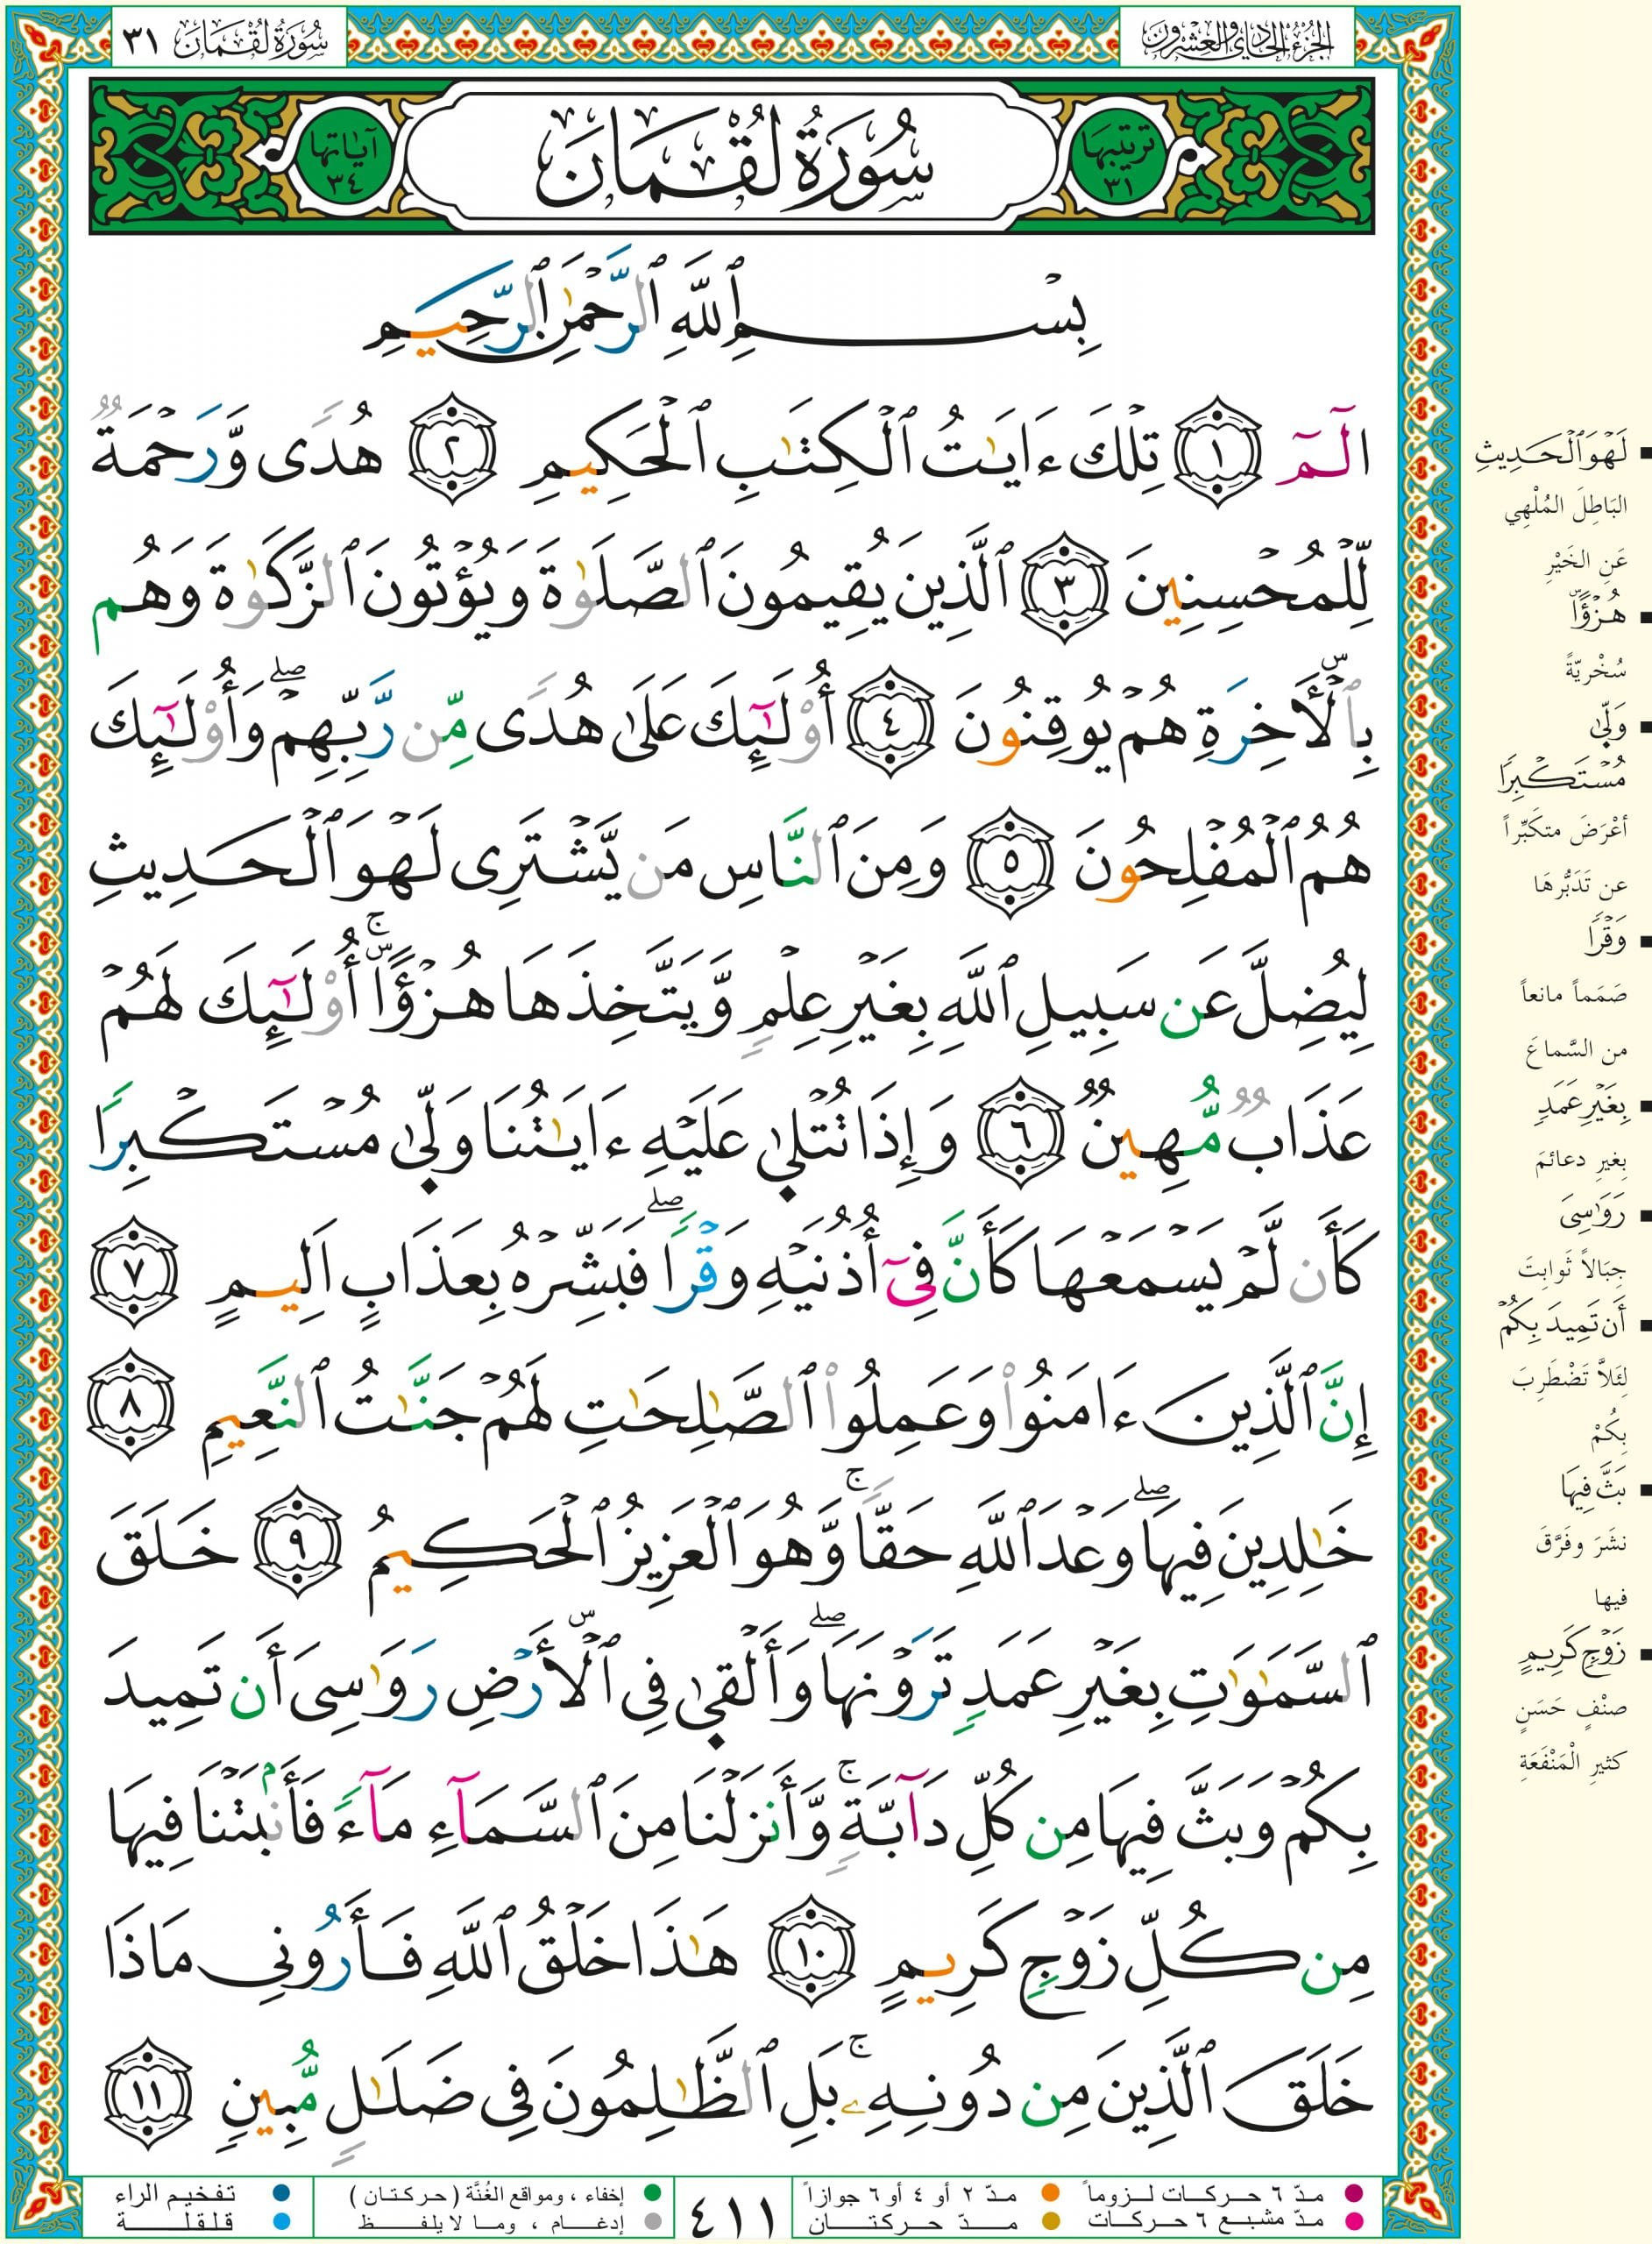 الجُزْءُ الحَادِي وَالعِشْرُونَ
سُورَةُ لُقْمَانَ ٣١
تَرتيبُهَا ٣١
سُورَةُ لُقْمَانَ
آيَاتُها ٣٤
بِسْمِ ٱللَّهِ ٱلرَّحْمَٰنِ ٱلرَّحِيمِ
الٓمٓ ١ تِلْكَ ءَايَٰتُ ٱلْكِتَٰبِ ٱلْحَكِيمِ ٢ هُدًى وَّرَحْمَةٌ
لِّلْمُحْسِنِينَ ٣ ٱلَّذِينَ يُقِيمُونَ ٱلصَّلَوٰةَ وَيُؤْتُونَ ٱلزَّكَوٰةَ وَهُم
بِٱلْأَخِرَةِ هُمْ يُوقِنُونَ ٤ أُوْلَٰٓئِكَ عَلَىٰ هُدًى مِّن رَّبِّهِمْ ۖ وَأُوْلَٰٓئِكَ
هُمُ ٱلْمُفْلِحُونَ ٥ وَمِنَ ٱلنَّاسِ مَن يَّشْتَرِى لَهْوَ ٱلْحَدِيثِ
لِيُضِلَّ عَن سَبِيلِ ٱللَّهِ بِغَيْرِ عِلْمٍ وَّيَتَّخِذَهَا هُزْؤًا ۚ أُوْلَٰٓئِكَ لَهُمْ
عَذَابٌ مُّهِينٌ ٦ وَإِذَا تُتْلَىٰ عَلَيْهِ ءَايَٰتُنَا وَلَّىٰ مُسْتَكْبِرًا
كَأَن لَّمْ يَسْمَعْهَا كَأَنَّ فِىٓ أُذُنَيْهِ وَقْرًا ۖ فَبَشِّرْهُ بِعَذَابٍ اَلِيمٍ ٧
إِنَّ ٱلَّذِينَ ءَامَنُوا۟ وَعَمِلُوا۟ ٱلصَّٰلِحَٰتِ لَهُمْ جَنَّٰتُ ٱلنَّعِيمِ ٨
خَٰلِدِينَ فِيهَا ۖ وَعْدَ ٱللَّهِ حَقًّا ۚ وَّهُوَ ٱلْعَزِيزُ ٱلْحَكِيمُ ٩ خَلَقَ
ٱلسَّمَٰوَٰتِ بِغَيْرِ عَمَدٍ تَرَوْنَهَا ۖ وَأَلْقَىٰ فِى ٱلْأَرْضِ رَوَٰسِىَ أَن تَمِيدَ
بِكُمْ وَبَثَّ فِيهَا مِن كُلِّ دَآبَّةٍ ۚ وَّأَنزَلْنَا مِنَ ٱلسَّمَآءِ مَآءً فَأَنۢبَتْنَا فِيهَا
مِن كُلِّ زَوْجٍ كَرِيمٍ ١٠ هَٰذَا خَلْقُ ٱللَّهِ فَأَرُونِى مَاذَا
خَلَقَ ٱلَّذِينَ مِن دُونِهِۦ ۚ بَلِ ٱلظَّٰلِمُونَ فِى ضَلَٰلٍ مُّبِينٍ ١١
لَهْوَ ٱلْحَدِيثِ
البَاطِلَ المُلْهِي
عَنِ الخَيْرِ
هُزْؤًا
سُخْريّةً
وَلَّىٰ
مُسْتَكْبِرًا
أعْرَضَ متكَبِّراً
عن تَدَبُّرِهَا
وَقْرًا
صَمَماً مانعاً
من السَّماعَ
بِغَيْرِ عَمَدٍ
بِغيرِ دعائمَ
رَوَٰسِىَ
جِبَالاً ثَوابِتَ
أَن تَمِيدَ بِكُمْ
لِئَلاَّ تَضْطَرِبَ
بِكُمْ
بَثَّ فِيهَا
نشَرَ وفَرَّقَ
فيها
زَوْجٍ كَرِيمٍ
صنْفٍ حَسَنٍ
كثيرِ الْمَنْفَعَةِ
مدّ ٦ حـركـات لـزوماً
مدّ ٢ أو ٤ أو ٦ جوازاً
مدّ مشبع ٦ حركات
مـدّ حـركتـان
٤١١
إخفاء ، ومواقع الغُنَّة ( حركتان )
إدغـام ، ومـا لا يلفـظ
تفخيم الراء
قلقلة